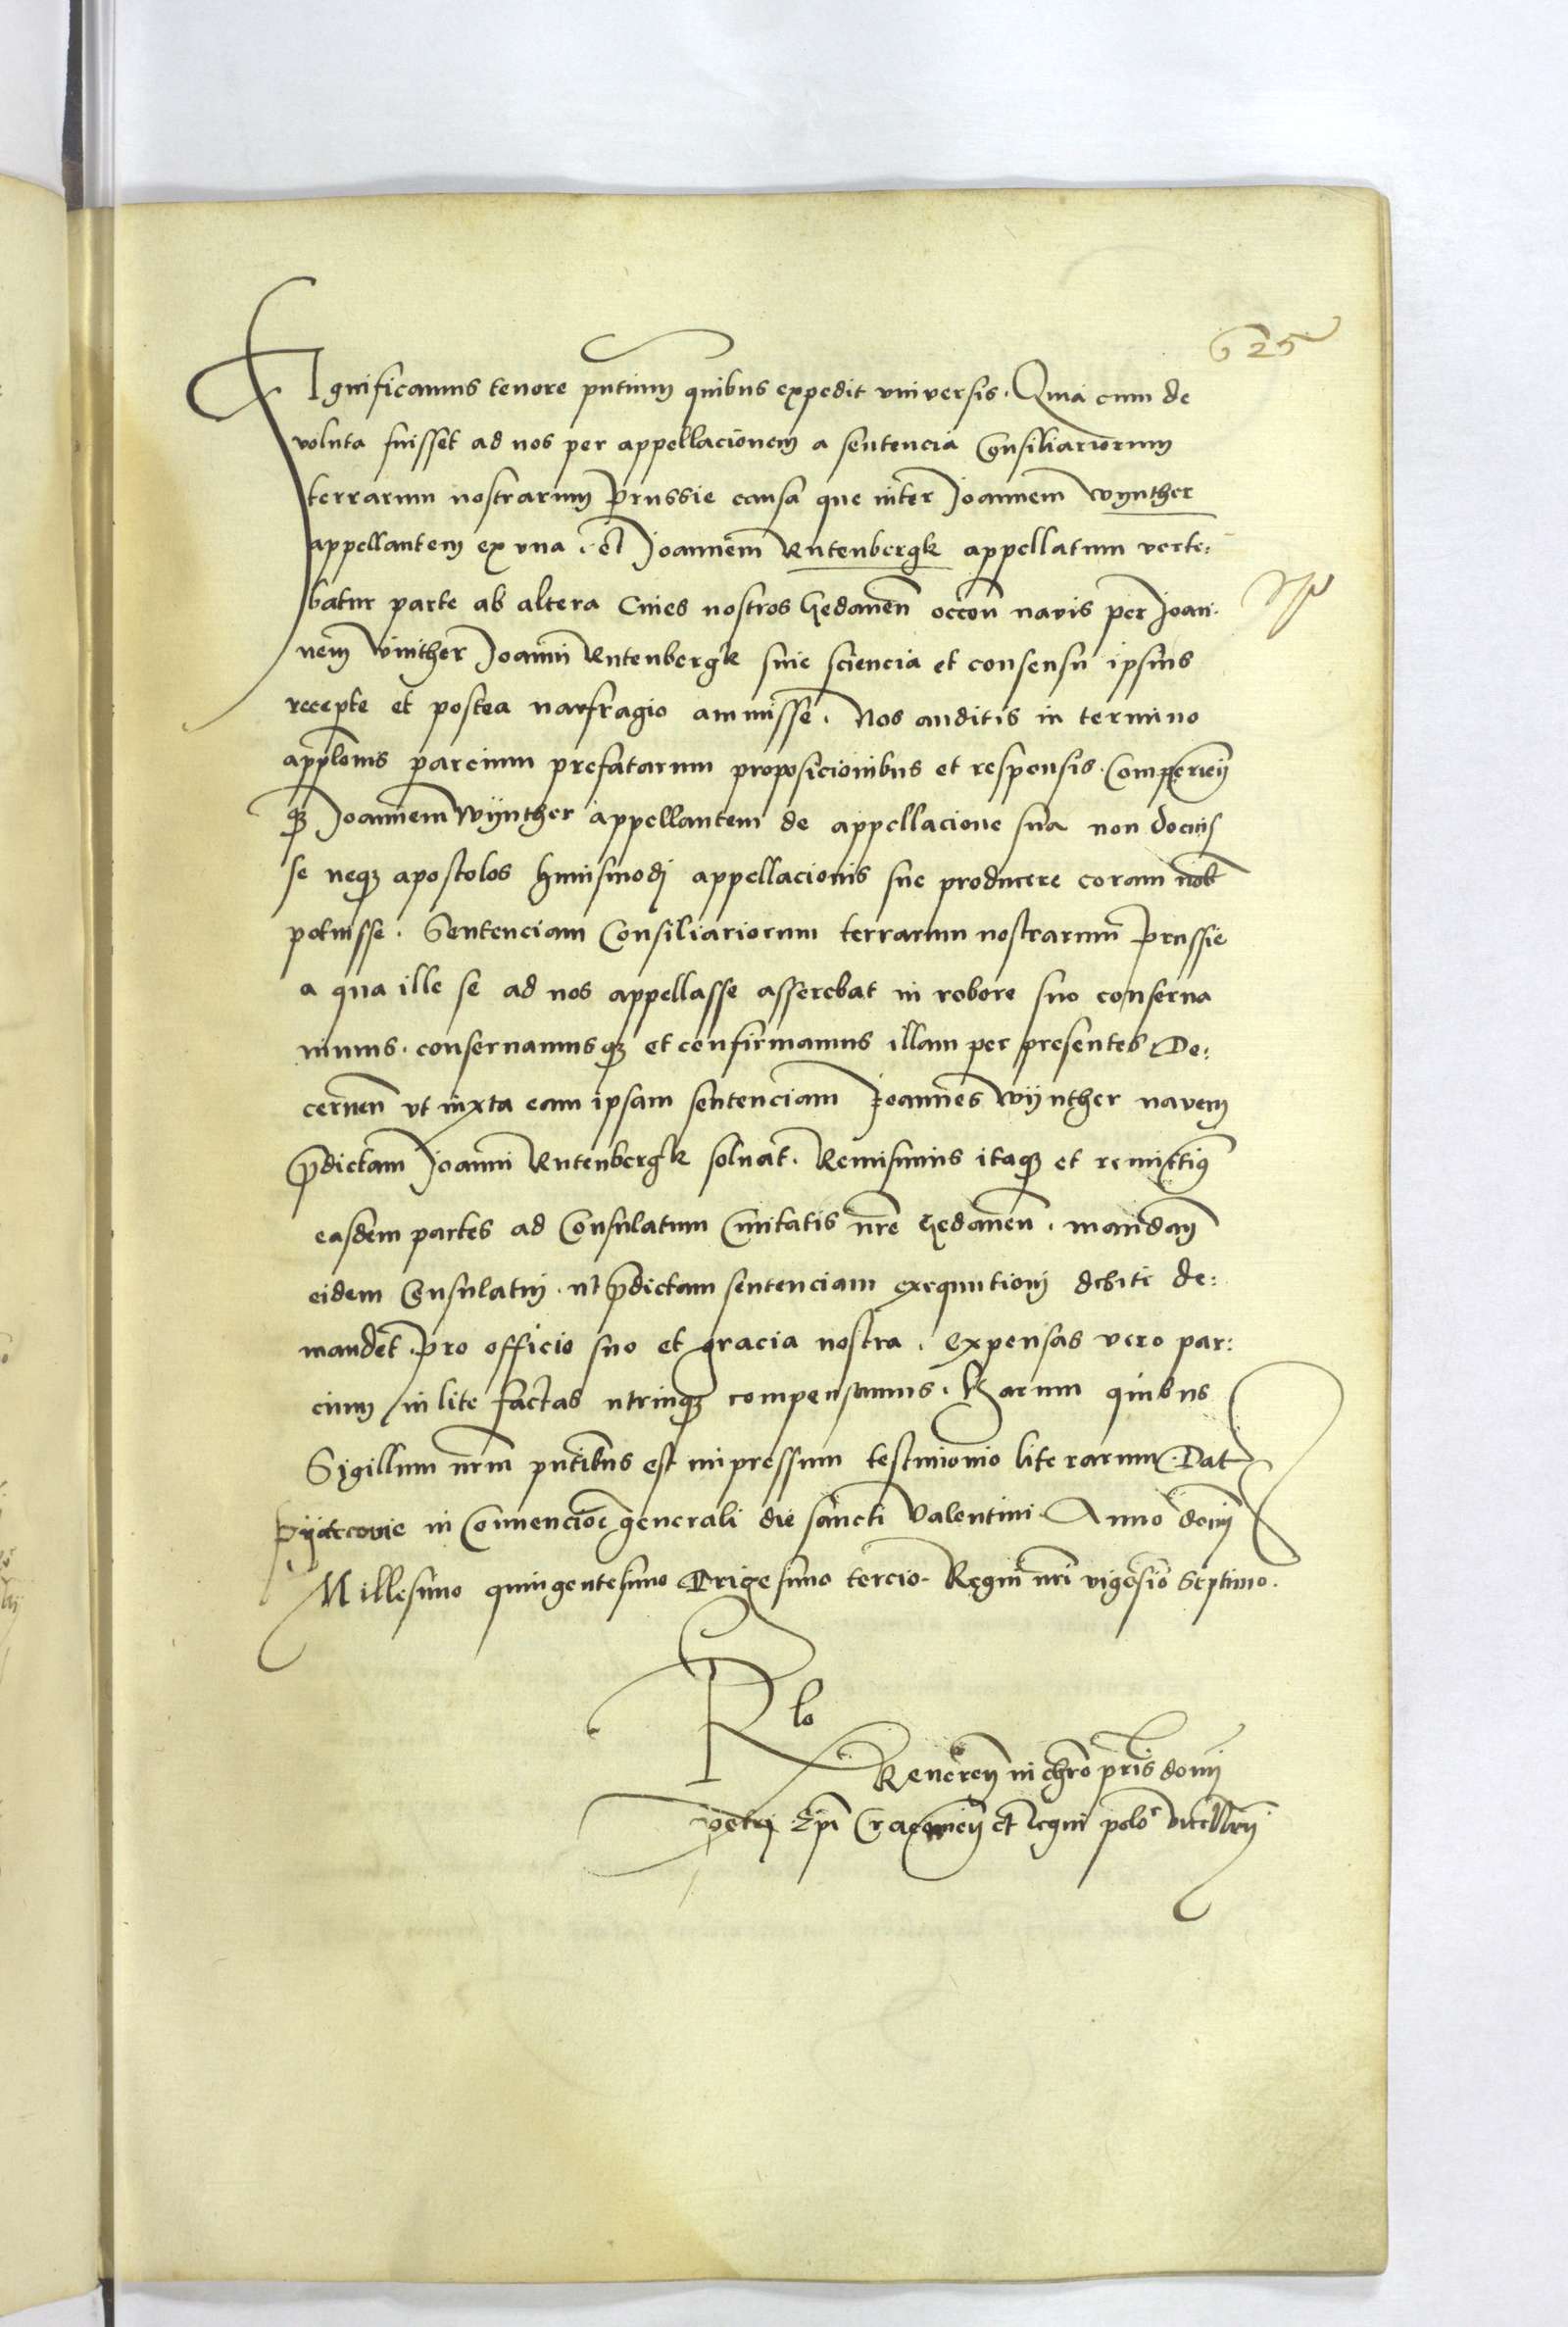 625
SIgnificamus tenore pñtium quibus expedit vniversis. Quia cum de
voluta fuisset ad nos per appellacionem a sentencia Consiliariorum
terrarum nostrarum Prussie causa que inter Joannem Wÿnther
appellantem ex vna et Joannem Rutenbergk appellatum verte:
batur parte ab altera Ciues nostros Gedaneñ occoñ navis per Joan-
nem Winther Joanni Rutenbergk sine sciencia et consensu ipsius
recepte et postea naufragio ammisse. Nos auditis in termino
appllonis parcium prefatarum proposicionibus et responsis. Comperieñ
q3 Joannem Wÿnther appellantem de appellacione sua non docuis
se neq3 apostolos huiusmodj appellacionis sue producere coram nob
potuisse. Sentenciam Consiliariorum terrarum nostrarum Prussie
a qua ille se ad nos appellasse asserebat in robore suo conserua
uimus. conseruamusq3 et confirmamus illam per presentes De:
cerneñ vt iuxta eam ipsam sentenciam Joannes Wÿnther navem
p̄dictam Joanni Rutenbergk soluat. Remisimus itaq3 et remittim9
easdem partes ad Consulatum Ciuitatis nr̄e Gedaneñ. mandañ
eidem Consulatuj. ut p̄dictam sentenciam exequutionj debite de:
mandet. pro officio suo et gracia nostra. Expensas vero par:
cium in lite factas utrinq3 compensamus. Harum quibus
Sigillum nr̄m pñtibus est impressum testimonio literarum. Dat
Pÿotrcovie in Conuencioe generali die sancti Valentini. Anno domj
Millesimo quingentesimo Trigesimo tercio. Regni nr̄i vigesio Septimo.
Rlo
Reuereñ in chro pr̄is domj
Petrj Ep̄i Cracovieñ et Regni polo vicecllrij